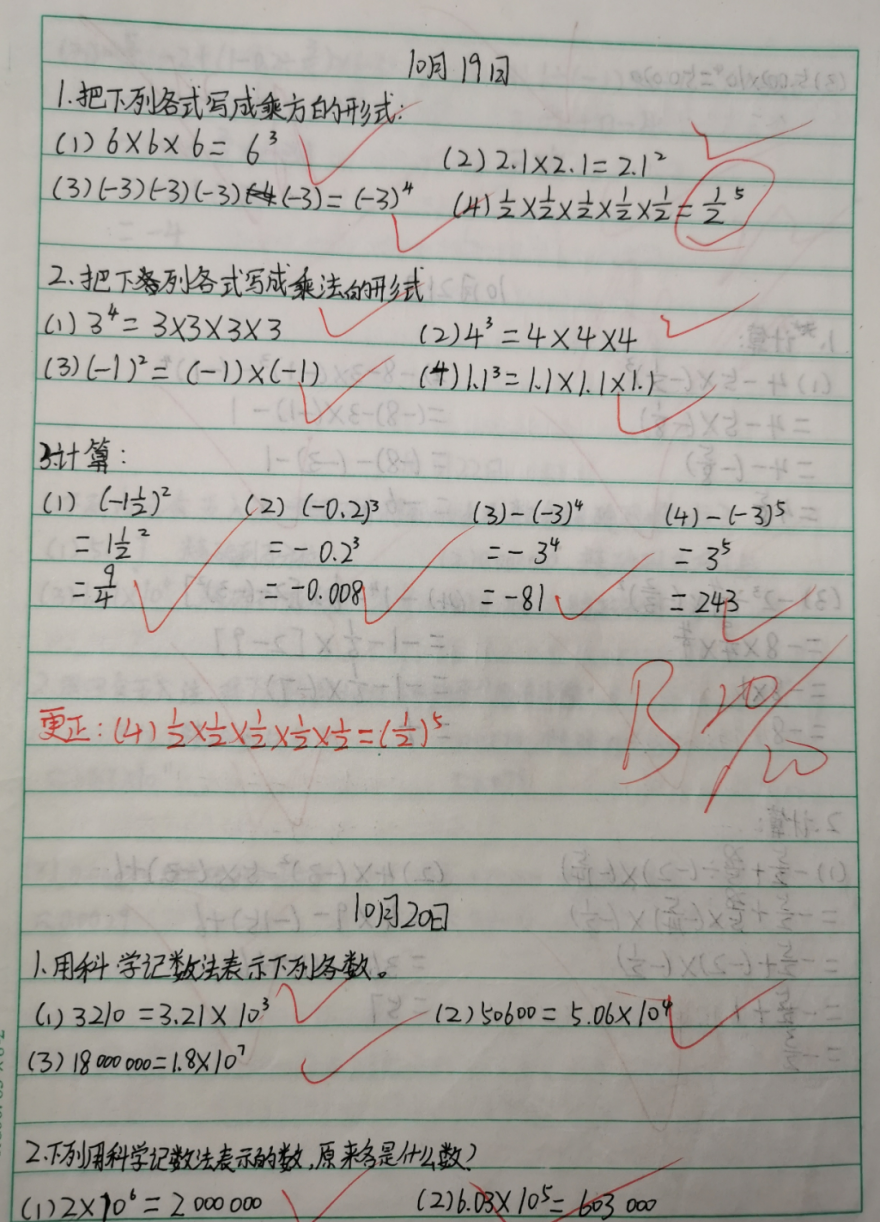 10月19日
1.把下列各式写成乘方的形式:
(1) 6×6×6 = 6³ (2) 2.1×2.1 = 2.1²
(3) (-3)(-3)(-3)(-3) = (-3)⁴ (4) ½×½×½×½×½ = ½⁵
2.把下列各式写成乘法的形式
(1) 3⁴ = 3×3×3×3 (2) 4³ = 4×4×4
(3) (-1)² = (-1)×(-1) (4) 1.1³ = 1.1×1.1×1.1
3.计算:
(1) (-1½)² (2) (-0.2)³ (3) -(-3)⁴ (4) -(-3)⁵
= 1½² = -0.2³ = -3⁴ = 3⁵
= 9/4 = -0.008 = -81 = 243
B
更正: (4) ½×½×½×½×½ = (½)⁵
10月20日
1.用科学记数法表示下列各数。
(1) 3210 = 3.21×10³ (2) 50600 = 5.06×10⁴
(3) 18000000 = 1.8×10⁷
2.下列用科学记数法表示的数,原来各是什么数?
(1) 2×10⁶ = 2000000 (2) 6.03×10⁵ = 603000